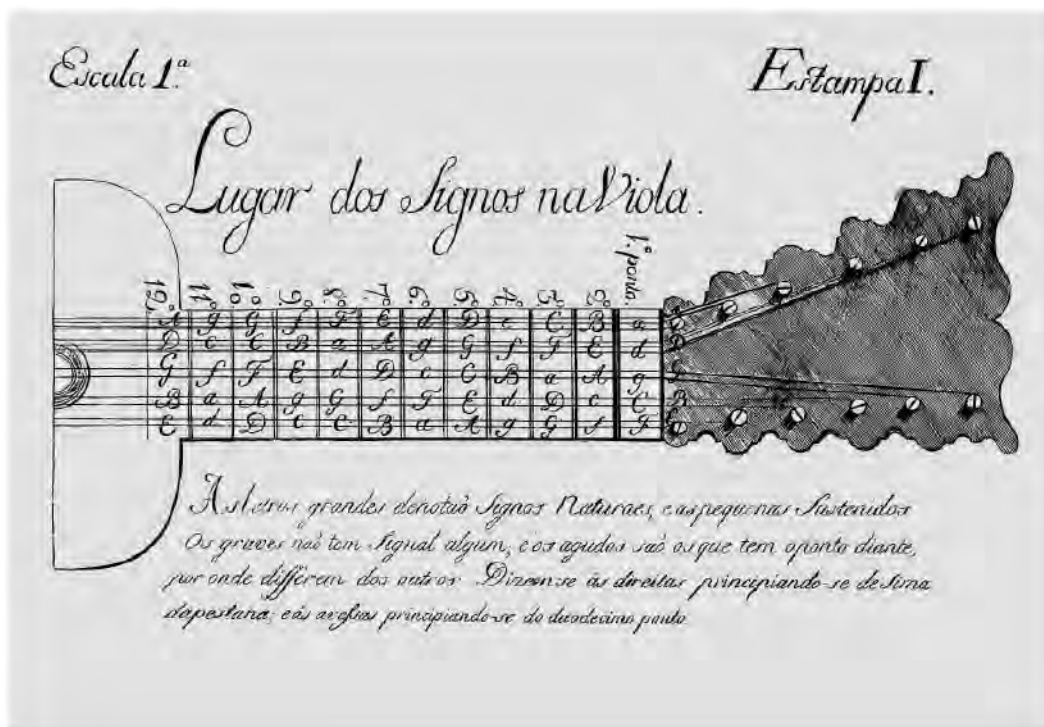 Escala 1.ª
Estampa I.
Lugar dos Signos na Viola.
12.º 11.º 10.º 9.º 8.º 7.º 6.º 5.º 4.º 3.º 2.º 1.º ponto.
A g G f F E d D c C B a
D c C B a A g G f F E d D
G f F E d D c C B a A g G
B a A g G f F E d D c C B
E d D c C B a A g G f F E
As letras grandes denotaõ Signos Naturaes, e as pequenas Sustenidos
Os graves naõ tem Signal algum; e os agudos saõ os que tem o ponto diante,
por onde differem dos outros Dizem-se ás direitas principiando-se de sima
da pestana; e ás avessas principiando-se do duodecimo ponto